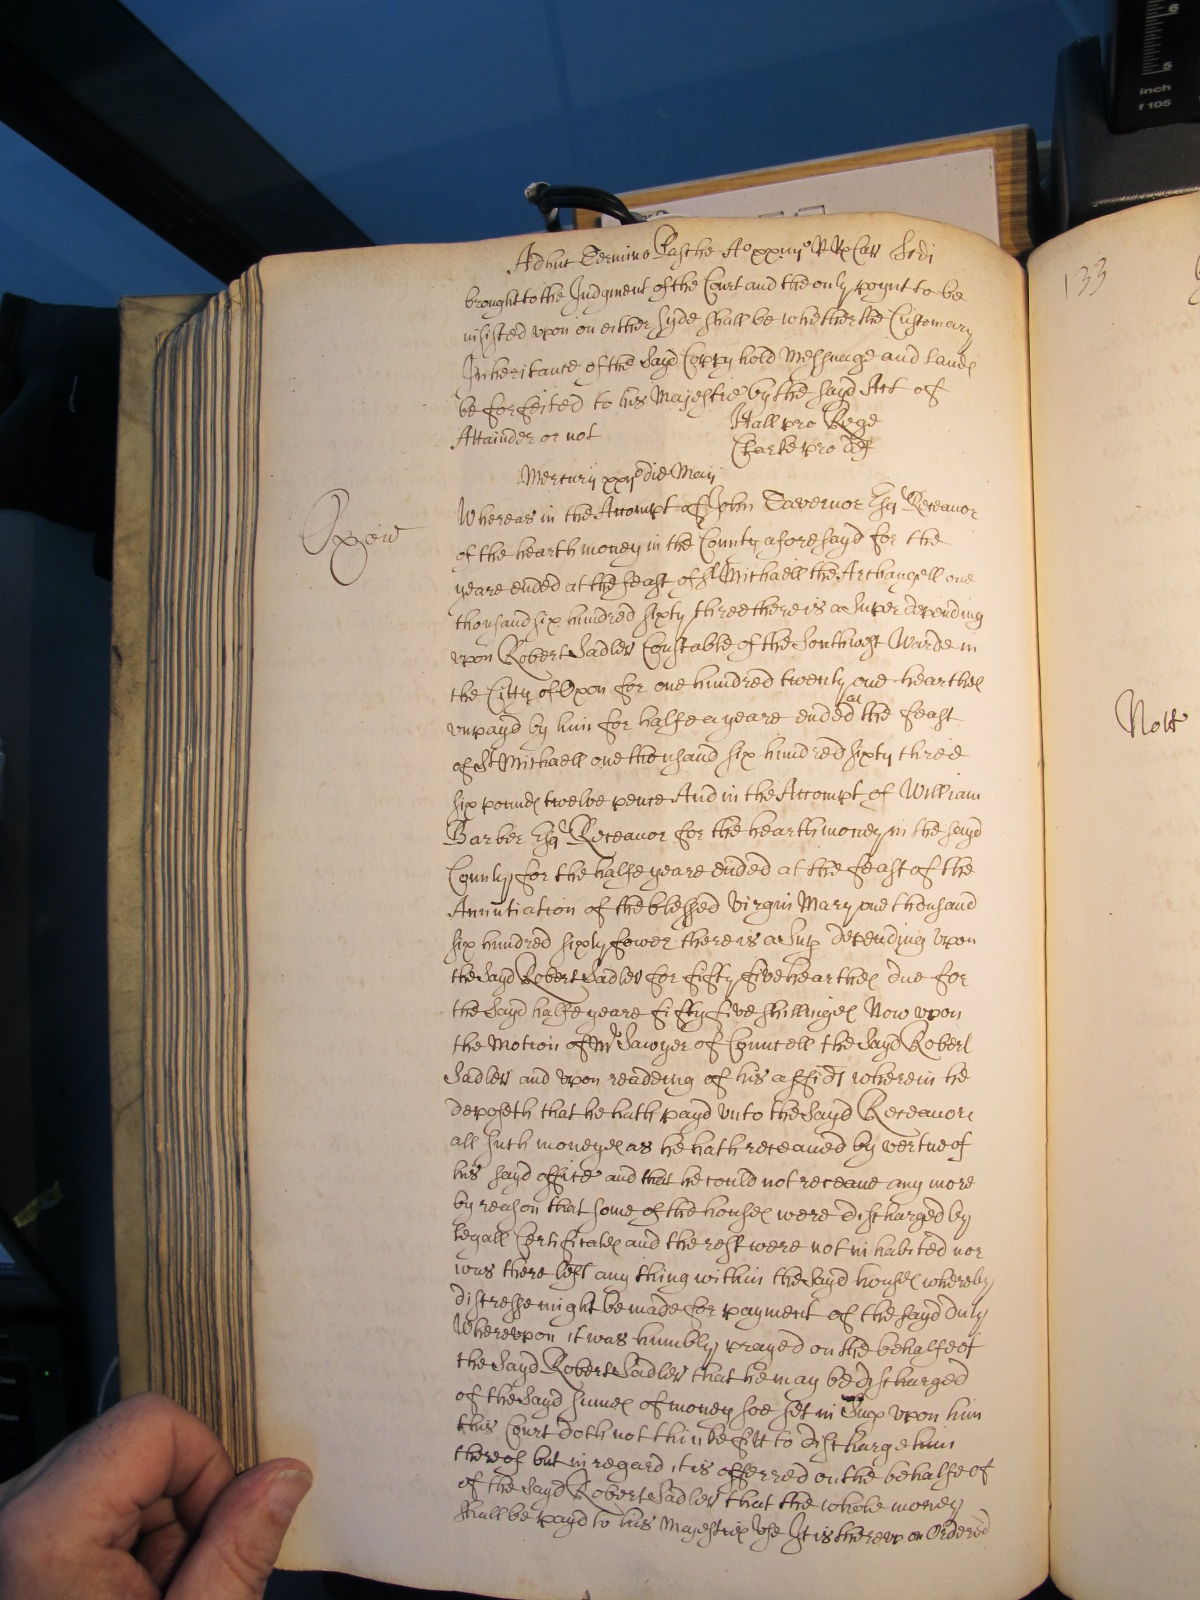 Adhuc Termino Pasche Ao xxiiijo R Rx Car Scdi
brought to the Judgment of the Court and the only poynt to be
insisted upon on either syde shall be whether the Customary
Inheritance of the Sayd Coppy hold Messuage and Lands
be forfeited to his Majestie by the Sayd Act of
Attainder or not
Hall pro Rege
Clarke pro def
Mercurij xxijo die Maij
Oxon
Whereas in the Accompt of John Tavernor Esqr Receavor
of the hearth money in the County aforesayd for the
yeare ended at the feast of St Michaell the Archangell one
thousand six hundred sixty three there is a Super depending
upon Robert Sadler Constable of the Southwest Warde in
the Citty of Oxon for one hundred twenty one hearthes
unpayd by him for halfe a yeare ended at the feast
of St Michaell one thousand six hundred sixty three
six pounds twelve pence And in the Accompt of William
Barber Esqr Receavor for the hearth money in the sayd
County for the halfe yeare ended at the feast of the
Annutiation of the blessed Virgin Mary one thousand
six hundred sixty fower there is a Sup depending upon
the Sayd Robert Sadler for fifty five hearthes due for
the Sayd halfe yeare fifty five shillinges Now upon
the Motion of Mr Sawyer of Councell the Sayd Robert
Sadler and upon readeing of his affidt wherein he
deposeth that he hath payd unto the Sayd Receavors
all such moneyes as he hath receaved by vertue of
his sayd office and that he could not receave any more
by reason that some of the houses were discharged by
legall Certificates and the rest were not inhabited nor
was there left any thing within the Sayd houses whereby
distresse might be made for payment of the sayd duty
Whereupon it was humbly prayed on the behalfe of
the Sayd Robert Sadler that he may be discharged
of the Sayd summes of money soe set in Sup upon him
this Court doth not thinke fitt to discharge him
thereof but in regard it is offerred on the behalfe of
of the Sayd Robert Sadler that the whole money
shall be payd to his Majesties Use It is thereupon Ordered
133
Norff
inch
f 105
5
6